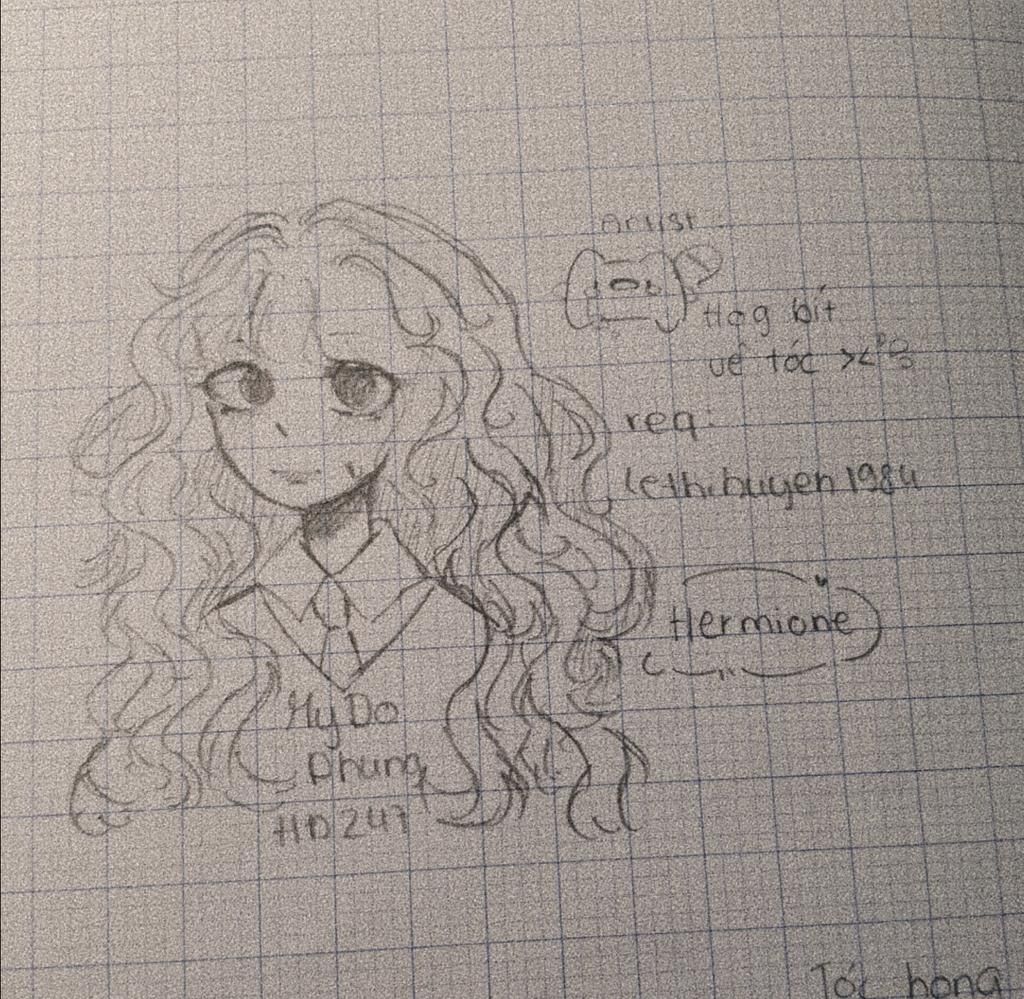 Artist:
Hog bít
vẽ tóc ><"3
req:
lethihuyen1984
Hermione
My Do
Phung
HD247
Tóc hong